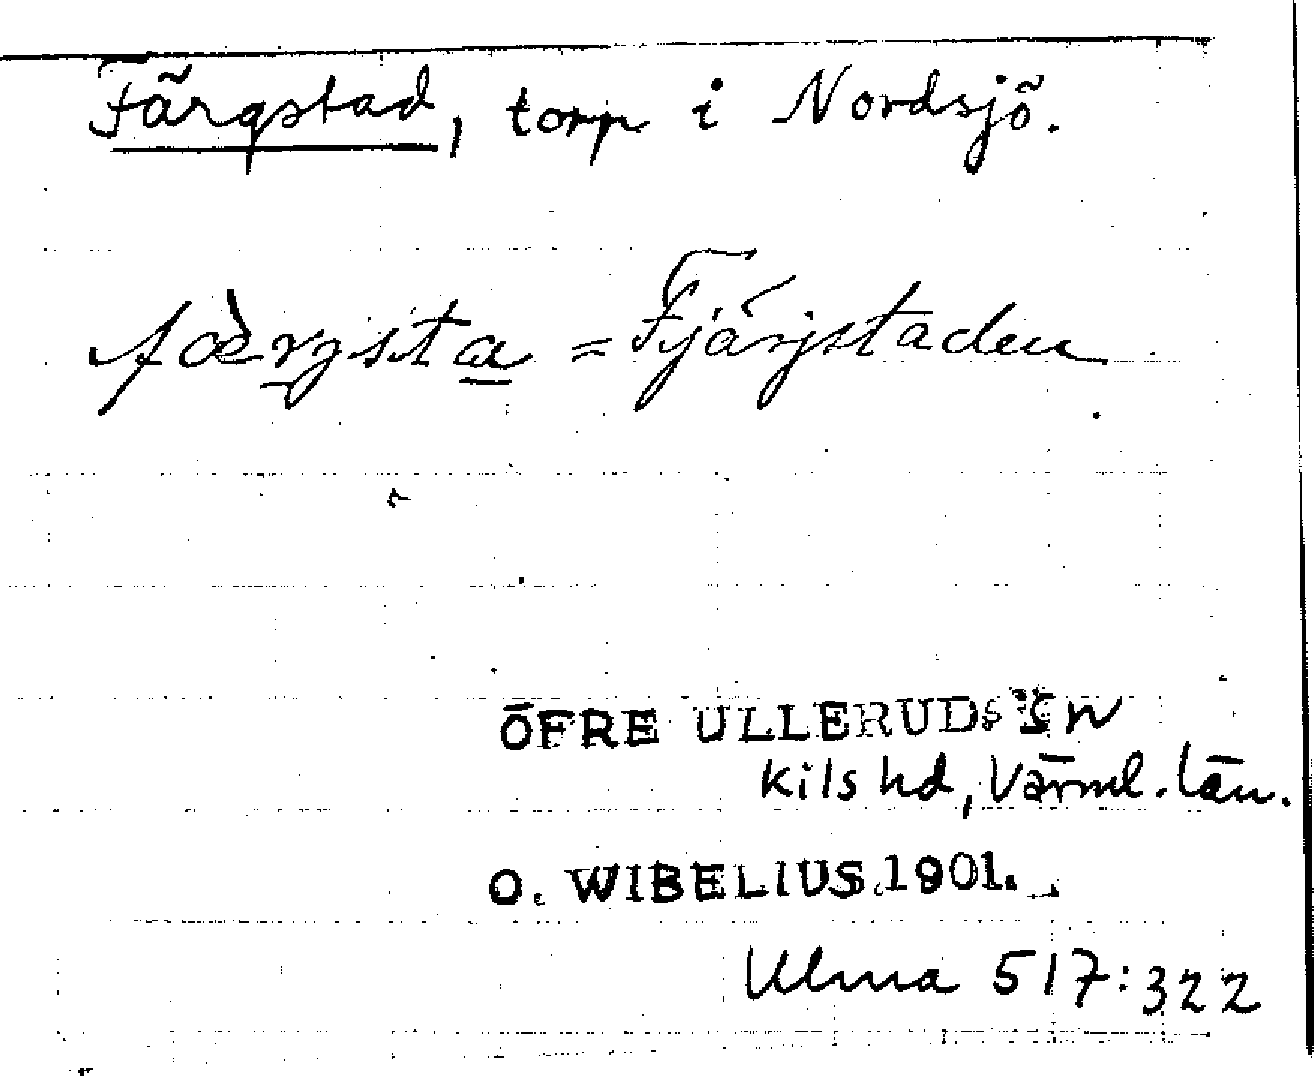 Färgstad, torp i Nordsjö.
fæ̀rgsta = Fjärjstaden
ÖFRE ULLERUDS SN
Kils hd, Värml. län.
O. WIBELIUS 1901.
Ulma 517:322